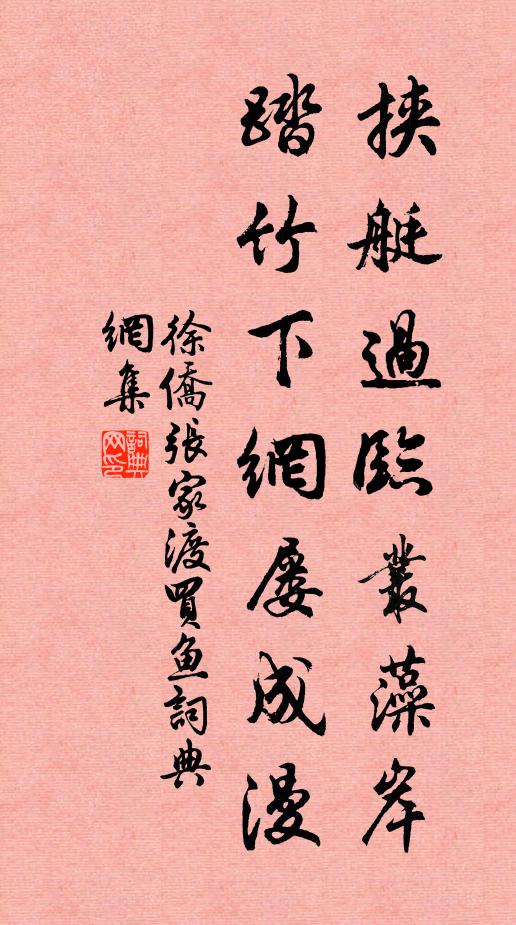 挾艇過臨叢藻岸
踏竹下網屢成漫
徐僑張家渡買魚詞典
網集
詞典
网印